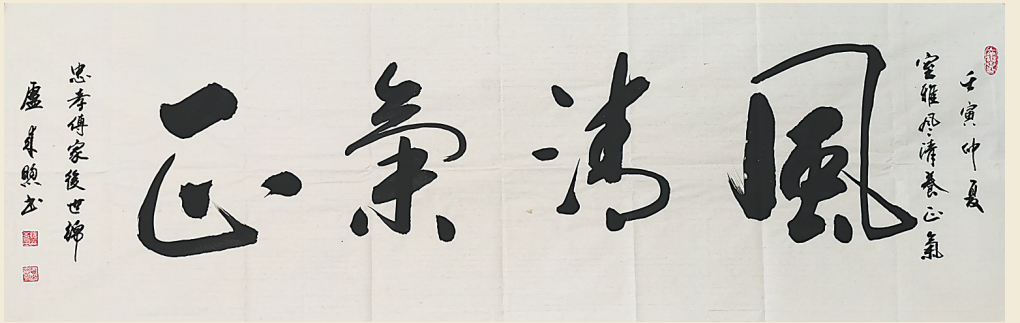 壬寅仲夏
室雅風清養正氣
風清氣正
忠孝傳家後世綿
盧
書